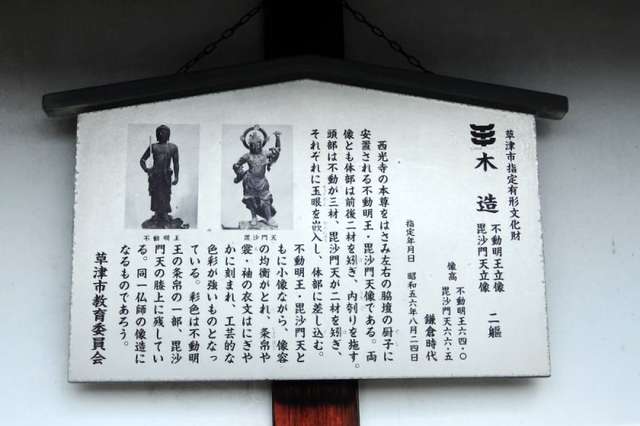 草津市指定有形文化財
木造 不動明王立像
毘沙門天立像 二軀
像高 不動明王六四・〇
毘沙門天六六・五
鎌倉時代
指定年月日 昭和五六年八月二四日
西光寺の本尊をはさみ左右の脇壇の厨子に
安置される不動明王・毘沙門天像である。両
像とも体部は前後二材を矧ぎ、内刳りを施す。
頭部は不動が三材、毘沙門天が二材を矧ぎ、
それぞれに玉眼を嵌入し、体部に差し込む。
不動明王・毘沙門天と
もに小像ながら、像容
の均衡がとれ、条帛や
裳・袖の衣文はにぎや
かに刻まれ、工芸的な
色彩が強いものとなっ
ている。彩色は不動明
王の条帛の一部、毘沙
門天の膝上に残してい
る。同一仏師の像造に
なるものであろう。
草津市教育委員会
不動明王
毘沙門天